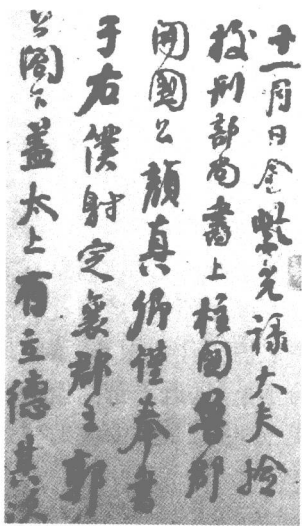 十一月日金紫光禄大夫捡
校刑部尚書上柱国魯郡
開國公顔真卿謹奉書
于右僕射定襄郡王郭
公閤下蓋太上有立德其次